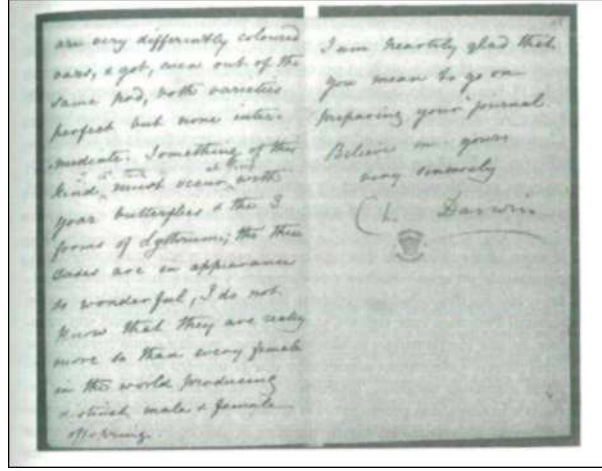 are very differently coloured
vars, & got, even out of the
same pod, both varieties
perfect but none inter-
mediate. Something of this
kind, must occur with
your butterflies & the 3
forms of Lythrum; tho' these
cases are in appearance
so wonderful, I do not
know that they are really
more so than every female
in the world producing
distinct male & female
offspring.
I am heartily glad that
you mean to go on
preparing your journal.
Believe me yours
very sincerely
Ch. Darwin